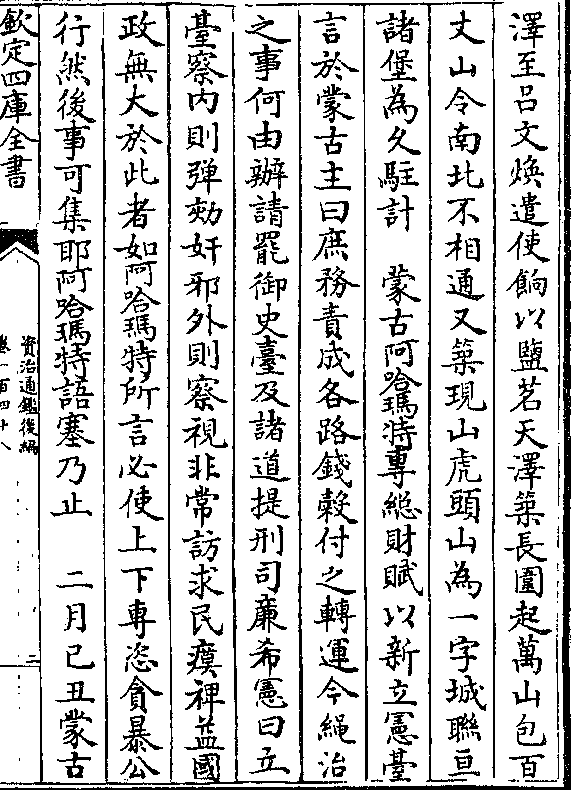 澤至吕文煥遣使餉以鹽茗天澤築長圍起萬山包百
丈山令南北不相通又築現山虎頭山為一字城聯亘
諸堡為久駐計　蒙古阿哈瑪特専總財賦以新立憲臺
言於蒙古主曰庶務責成各路錢穀付之轉運今繩治
之事何由辦請罷御史臺及諸道提刑司廉希憲曰立
臺察内則弾劾奸邪外則察視非常訪求民瘼裨益國
政無大於此者如阿哈瑪特所言必使上下専恣貪暴公
行然後事可集耶阿哈瑪特語塞乃止　二月己丑蒙古
欽定四庫全書
資治通鑑後編
卷一百四十八
二